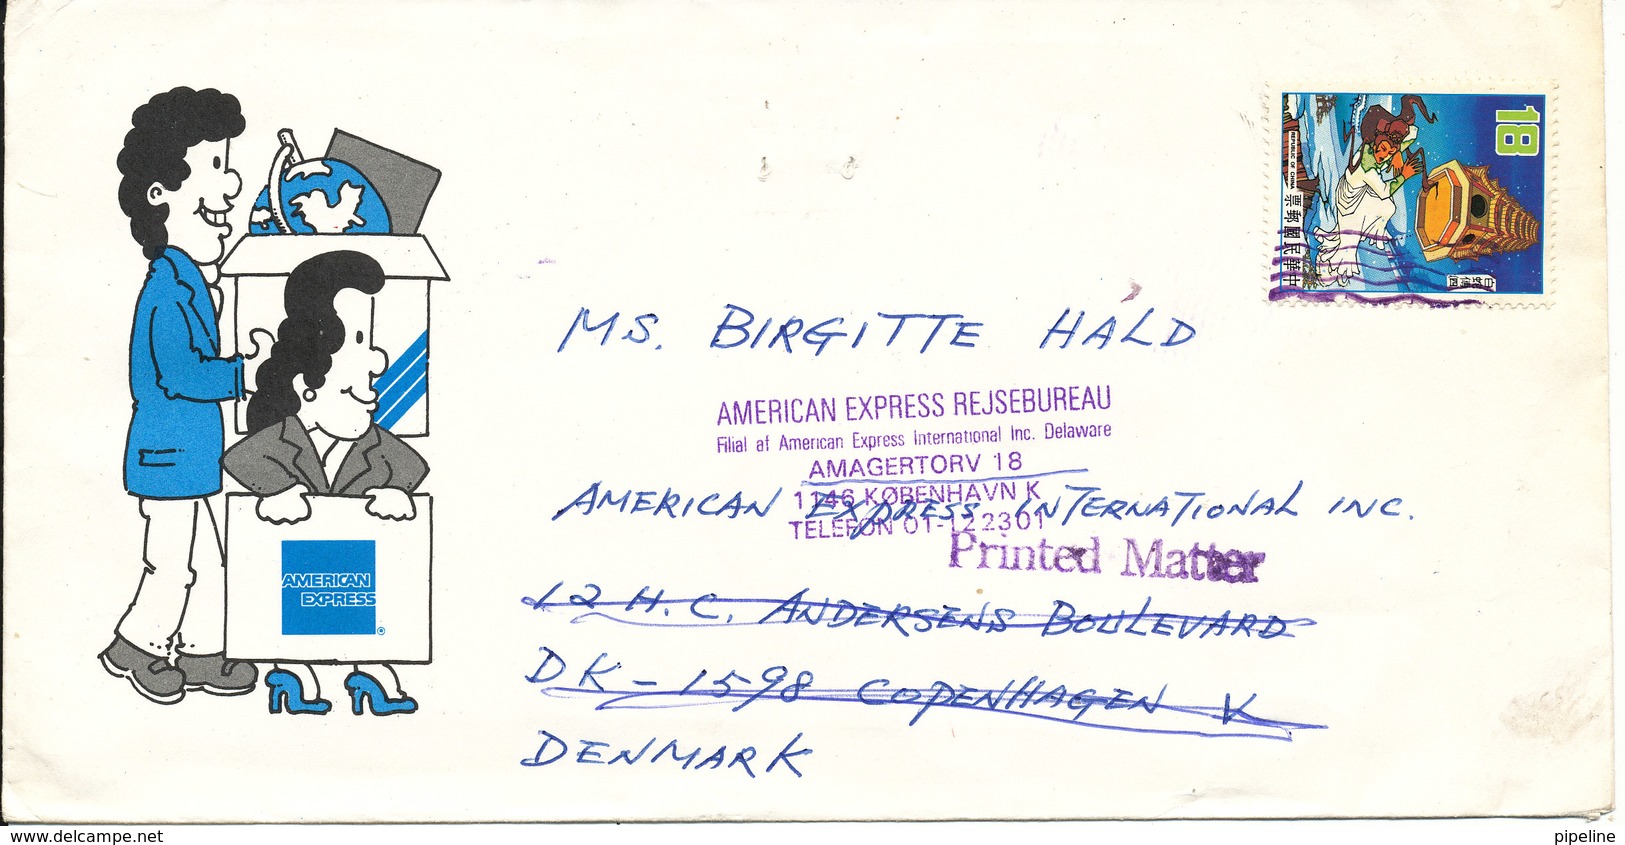 18
REPUBLIC OF CHINA
中華民國郵票
白蛇傳
MS. BIRGITTE HALD
AMERICAN EXPRESS REJSEBUREAU
Filial af American Express International Inc. Delaware
AMAGERTORV 18
1146 KØBENHAVN K
TELEFON 01-122301
AMERICAN EXPRESS INTERNATIONAL INC.
Printed Matter
12 H.C. ANDERSENS BOULEVARD
DK-1598 COPENHAGEN V
DENMARK
AMERICAN
EXPRESS
®
delcampe.net
pipeline